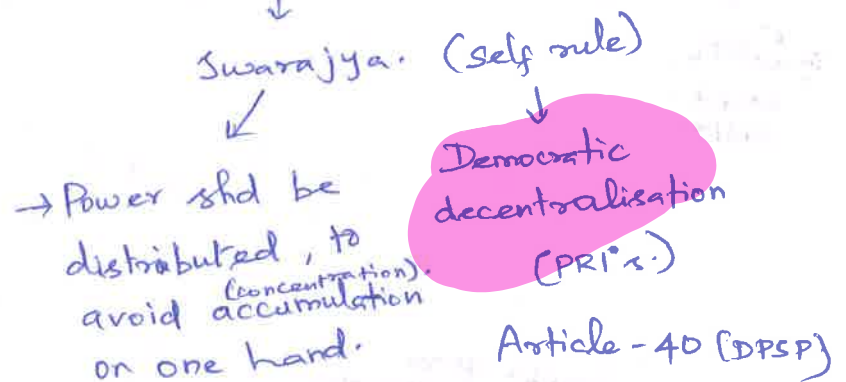 Swarajya. (self rule)
→ Power shd be
distributed, to
(concentration).
avoid accumulation
on one hand.
Democratic
decentralisation
(PRI's.)
Article - 40 (DPSP)